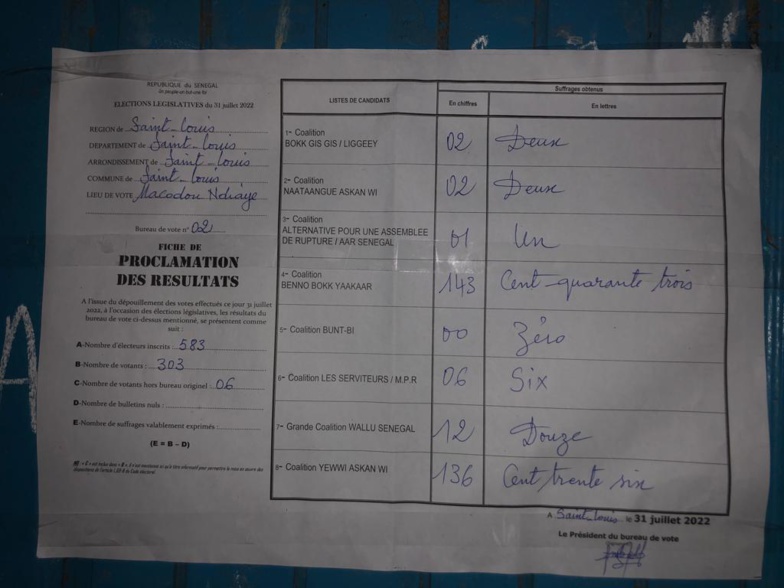 REPUBLIQUE du SENEGAL
ELECTIONS LEGISLATIVES du 31 juillet 2022
REGION de Saint-Louis
DEPARTEMENT de Saint-Louis
ARRONDISSEMENT de Saint-Louis
COMMUNE de Saint-Louis
LIEU DE VOTE Macodou Ndiaye
Bureau de vote n° 02
FICHE DE
PROCLAMATION
DES RESULTATS
A l'issue du dépouillement des votes effectués ce jour 31 juillet
2022, à l'occasion des élections législatives, les résultats du
bureau de vote ci-dessus mentionné, se présentent comme
suit :
A-Nombre d'électeurs inscrits : 583
B-Nombre de votants : 303
C-Nombre de votants hors bureau originel : 06
D-Nombre de bulletins nuls :
E-Nombre de suffrages valablement exprimés :
(E = B – D)
LISTES DE CANDIDATS
Suffrages obtenus
En chiffres
En lettres
1- Coalition
BOKK GIS GIS / LIGGEEY
02
Deux
2- Coalition
NAATAANGUE ASKAN WI
02
Deux
3- Coalition
ALTERNATIVE POUR UNE ASSEMBLEE
DE RUPTURE / AAR SENEGAL
01
Un
4- Coalition
BENNO BOKK YAAKAAR
143
Cent quarante trois
5- Coalition BUNT-BI
00
Zéro
6- Coalition LES SERVITEURS / M.P.R
06
Six
7- Grande Coalition WALLU SENEGAL
12
Douze
8- Coalition YEWWI ASKAN WI
136
Cent trente six
A Saint-Louis le 31 juillet 2022
Le Président du bureau de vote